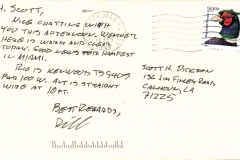 H. SCOTT,
NICE CHATTING WITH
YOU THIS AFTERNOON. WEATHER
HERE IS WARM AND CLEAR
TODAY. GOOD NEWS FOR HAMFEST
IN MIAMI.
RIG IS KENWOOD TS940S
PWR 100 W. ALT IS STRAIGHT
WIRE AT 18 FT.
BEST REGARDS,
Bill
SCOTT H. DICKSON
136 LIN FINLEY ROAD
CALHOUN, LA
71225